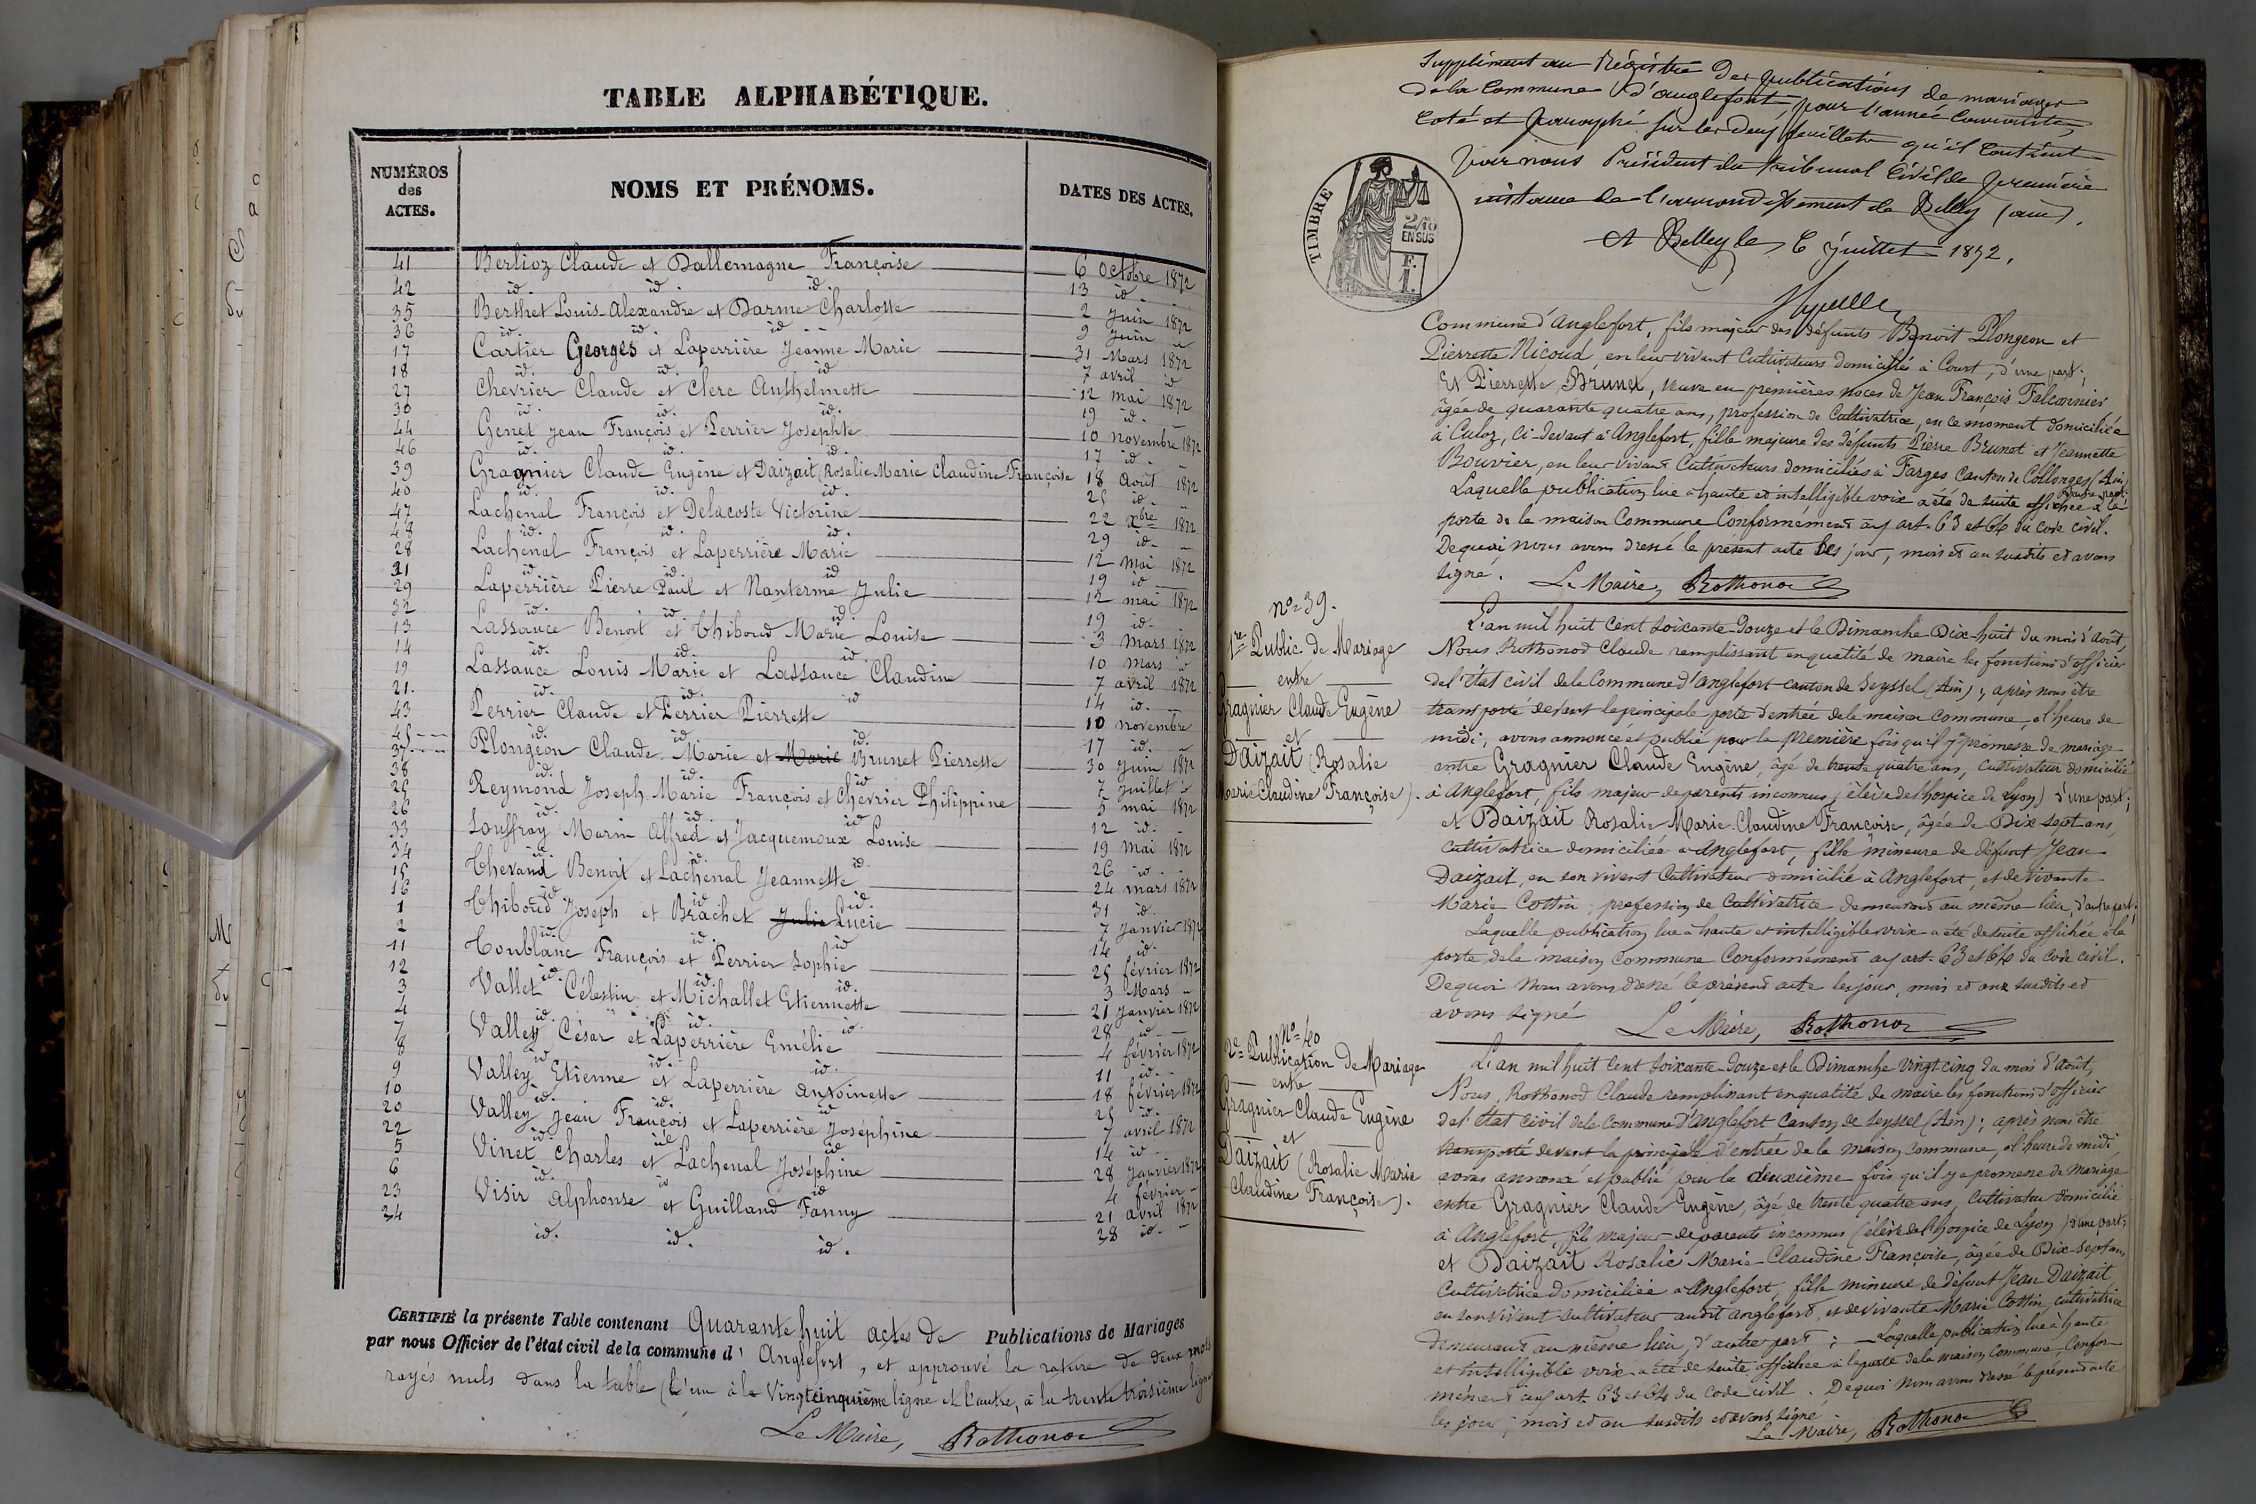 TABLE ALPHABÉTIQUE.
NUMÉROS des ACTES.
NOMS ET PRÉNOMS.
DATES DES ACTES.
41 Berlioz Claude et Dallemagne Françoise 6 Octobre 1872
42 id. id. id. 13 id.
35 Berthet Louis-Alexandre et Darme Charlotte 2 Juin 1872
36 id. id. id. 9 Juin
17 Cartier Georges et Laperrière Jeanne Marie 31 Mars 1872
18 id. id. id 7 avril id
27 Chevrier Claude et Clerc Anthelmette 12 mai 1872
30 id. id. id. 19 id.
44 Genet Jean François et Perrier Josephte 10 novembre 1872
46 id. id. id. 17 id.
39 Gragnier Claude Eugène et Daizait (Rosalie Marie Claudine Françoise 18 Août 1872
40 id. id. id. 25 id.
47 Lachenal François et Delacoste Victorine 22 Xbre 1872
48 id. id. id. 29 id.
28 Lachenal François et Laperrière Marie 12 Mai 1872
31 id id. id 19 id
29 Laperrière Pierre Paul et Nanterme Julie 12 mai 1872
32 id. id. id. 19 id.
13 Lassance Benoit et Thiboud Marie Louise 3 Mars 1872
14 id. id. id 10 Mars id
19 Lassance Louis Marie et Lassance Claudine 7 avril 1872
21. id. id. id 14 id.
43 Perrier Claude et Perrier Pierrette 10 novembre
45 id. id. id. 17 id.
37 Plongeon Claude Marie et Marie Brunet Pierrette 30 Juin 1872
38 id. id. id 7 Juillet
25 Reymond Joseph Marie François et Chevrier Philippine 5 mai 1872
26 id. id. id 12 id.
33 Souffray Marin Alfred et Jacquemoux Louise 19 Mai 1872
34 id id id. 26 id.
15 Thevand Benoit et Lachenal Jeannette 24 mars 1872
16 id id id. 31 id.
1 Thiboud Joseph et Brachet Julie Lucie 7 Janvier 1872
2 id. id. id 14 id.
11 Toublanc François et Perrier Sophie 25 février 1872
12 id. id. id. 3 Mars
3 Vallet Célestin et Michallet Etiennette 21 Janvier 1872
4 id. id. id. 28 id
7 Valley César et Laperrière Emélie 4 février 1872
8 id id. id. 11 id.
9 Valley Etienne et Laperrière Antoinette 18 février 1872
10 id. id. id 25 id.
20 Valley Jean François et Laperrière Joséphine 7 avril 1872
22 id. id id 14 id
5 Vinet Charles et Lachenal Joséphine 28 Janvier 1872
6 id. id id 4 février
23 Visir Alphonse et Guilland Fanny 21 avril 1872
24 id. id. id. 28 id.
CERTIFIÉ la présente Table contenant Quarante huit actes de Publications de Mariages
par nous Officier de l'état civil de la commune d' Anglefort, et approuvé la rature de deux mots
rayés nuls dans la table (l'un à la Vingtcinquième ligne et l'autre, à la trente troisième ligne
Le Maire, Rothonod
Supplément au Régistre des publications de mariages
de la Commune d'Anglefort, pour l'année Courante,
Coté et paraphé sur les deux feuillets qu'il contient
par nous Président du tribunal Civil de première
instance de l'arrondissement de Belley (ain).
A Belley le 6 Juillet 1872.
TIMBRE
2/10
EN SUS
F.
1.
Commune d'Anglefort, fils majeur des défunts Benoit Plongeon et
Pierrette Nicoud, en leur vivant Cultivateurs domiciliés à Court, d'une part;
Et Pierrette Brunet, veuve en premières noces de Jean François Falconnier
âgée de quarante quatre ans, profession de Cultivatrice, en ce moment domiciliée
à Culoz, Ci-devant à Anglefort, fille majeure des défunts Pierre Brunet et Jeannette
Bouvier, en leur vivant Cultivateurs domiciliés à Farges Canton de Collonges (Ain)
d'autre part:
Laquelle publication lue à haute et intelligible voix a été de suite affichée à la
porte de la maison Commune Conformément aux art. 63 et 64 du code civil.
De quoi nous avons dressé le présent acte les jour, mois et an susdits et avons
signé. Le Maire, Rothonod
N° 39.
1re Public. de Mariage
entre
Gragnier Claude Eugène
et
Daizait (Rosalie
Marie Claudine Françoise).
L'an mil huit cent soixante-Douze et le Dimanche Dix-huit du mois d'Août,
Nous Rothonod Claude remplissant en qualité de maire les fonctions d'officier
de l'état civil de la Commune d'Anglefort canton de Seyssel (Ain); après nous être
transporté devant la principale porte d'entrée de la maison Commune, à l'heure de
midi, avons annoncé et publié pour la première fois qu'il y a promesse de mariage
entre Gragnier Claude Eugène, âgé de trente quatre ans, Cultivateur domicilié
à Anglefort, fils majeur de parents inconnus (élève de l'hospice de Lyon) d'une part;
et Daizait Rosalie Marie Claudine Françoise, âgée de Dix sept ans,
Cultivatrice domiciliée à Anglefort, fille mineure de défunt Jean
Daizait, en son vivant Cultivateur domicilié à Anglefort, et de vivante
Marie Cottin, profession de Cultivatrice demeurant au même lieu, d'autre part;
Laquelle publication lue à haute et intelligible voix a été de suite affichée à la
porte de la maison Commune Conformément aux art. 63 et 64 du code civil.
De quoi Nous avons dressé le présent acte les jour, mois et an susdits et
avons signé
Le Maire, Rothonod
N° 40
2e Publication de Mariage
entre
Gragnier Claude Eugène
et
Daizait (Rosalie Marie
Claudine Françoise).
L'an mil huit cent soixante-Douze et le Dimanche vingt cinq du mois d'Août,
Nous, Rothonod Claude remplissant en qualité de maire les fonctions d'officier
de l'état civil de la Commune d'Anglefort Canton de Seyssel (Ain); après nous être
transporté devant la principale d'entrée de la maison Commune, à l'heure de midi
avons annoncé et publié pour la deuxième fois qu'il y a promesse de mariage
entre Gragnier Claude Eugène, âgé de trente quatre ans, Cultivateur domicilié
à Anglefort, fils majeur de parents inconnus (élève de l'hospice de Lyon) d'une part;
et Daizait Rosalie Marie-Claudine Françoise, âgée de Dix-sept ans,
Cultivatrice domiciliée à Anglefort, fille mineure de défunt Jean Daizait,
en son vivant cultivateur audit Anglefort, et de vivante Marie Cottin, cultivatrice
demeurant au même lieu, d'autre part; Laquelle publication lue à haute
et intelligible voix a été de suite affichée à la porte de la maison Commune, Confor-
mément aux art. 63 et 64 du Code civil. De quoi Nous avons dressé le présent acte
les jour, mois et an susdits et avons signé
Le Maire, Rothonod